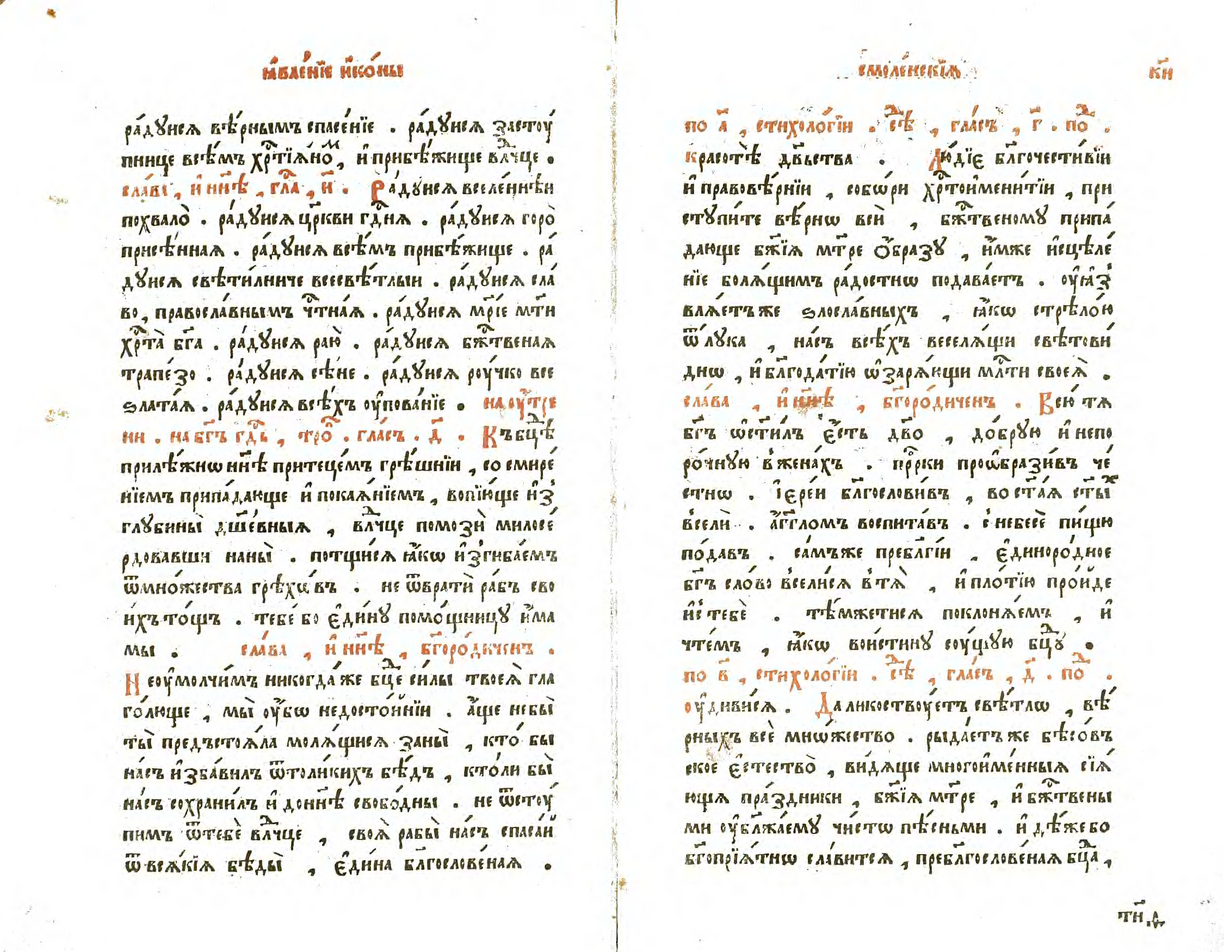 ꙗ҆вле́нїе и҆ко́ны
ра́дꙋисѧ вѣ́рнымъ спасе́нїе . ра́дꙋисѧ застоу́
пнице всѣ́мъ хрⷭ҇тїѧ́нѡⷨ, и҆ прибѣ́жище влⷣчце .
сла́ва , и҆ нн҃ѣ , гла , и҃ . Ра́дꙋисѧ вселе́ннѣи
похвало̀ . ра́дꙋисѧ цр҃кви гдⷭ҇нѧ . ра́дꙋисѧ горо̀
присѣ́ннаѧ . ра́дꙋисѧ всѣ́мъ прибѣ́жище . ра́
дꙋисѧ свѣти́лниче всесвѣ́тлыи . ра́дꙋисѧ сла́
во , правосла́внымъ чⷭ҇тнаѧ . ра́дꙋисѧ мр҃їе мт҃и
хрⷭ҇та̀ бг҃а . ра́дꙋисѧ раю̀ . ра́дꙋисѧ бжⷭ҇твенаѧ
трапе́зо . ра́дꙋисѧ сѣ́не . ра́дꙋисѧ роу́чко все
ѕлата́ѧ . ра́дꙋисѧ всѣ́хъ оу҆пова́нїе . на оу҆́тре
ни . на бг҃ъ гдⷭ҇ь , тро . гла́съ . д҃ . Къ бцⷣѣ
прилѣ́жнѡ нн҃ѣ прите́цемъ грѣ́шнїи , со смире́
нїемъ припа́дающе и҆ покаѧ́нїемъ , вопїю́ще и҆з̾
глꙋбины̀ дш҃е́вныѧ , влⷣчце помозѝ милосе́
рдовавши на ны̀ . потщи́сѧ ꙗ҆́кѡ и҆з̾гиба́емъ
ѿ мно́жества грѣхѡ́въ . не ѿвратѝ ра́бъ сво
и́хъ то́щъ . тебе́ бо є҆ди́нꙋ помо́щницꙋ и҆́ма
мы . сла́ва , и҆ нн҃ѣ , бг҃оро́диченъ .
Не оу҆молчи́мъ никогда́же бцⷣе си́лы твоеѧ̀ гла
го́люще , мы̀ оу҆́бѡ недосто́йнїи . а҆́ще не бы̀
ты̀ предъстоѧ́ла молѧ́щисѧ за ны̀ , кто́ бы
на́съ и҆зба́вилъ ѿ толи́кихъ бѣ́дъ , кто́ ли бы̀
на́съ сохрани́лъ и҆ до нн҃ѣ свобо́дны . не ѿстоу́
пимъ ѿ тебѐ влⷣчце , своѧ̀ рабы̀ на́съ спаса́й
ѿ всѧ́кїѧ бѣды̀ , є҆ди́на блг҃ослове́наѧ .
смоле́нскїѧ
к҃и
по а҃ , стихоло́гїи . сѣⷣ , гла́съ , г҃ . поⷣ .
красотѣ̀ дв҃ьства . Лю́дїє блг҃очести́вїи
и҆ правовѣ́рнїи , собо́ри хрⷭ҇тоимени́тїи , при
стꙋпи́те вѣ́рнѡ всѝ , бжⷭ҇твеномꙋ припа́
дающе бж҃їѧ мт҃ре ѻ҆́бразꙋ , и҆́мже и҆сцѣле́
нїе болѧ́щимъ ра́достнѡ подава́етъ . оу҆ѧз̾
влѧ́етъ же ѕлосла́вныхъ , ꙗ҆́кѡ стрѣло́ю
ѿ лꙋ́ка , на́съ всѣ́хъ веселѧ́щи свѣтови́
днѡ , и҆ блг҃ода́тїю ѡ҆зарѧ́ющи млⷭ҇ти своеѧ̀ .
сла́ва , и҆ нн҃ѣ , бг҃оро́диченъ . Всю́ тѧ
бг҃ъ ѡ҆ст҃и́лъ є҆́сть дв҃о , до́брꙋю и҆ непо
ро́чнꙋю в̾ жена́хъ . прⷪ҇рки проѡбрази́въ че́
стнѡ . і҆ере́и блг҃ослови́въ , во ст҃а́ѧ ст҃ы́ⷯ
вселѝ . а҆́гг҃ломъ воспита́въ . с̾ небесѐ пи́щю
пода́въ . са́мъ же пребл҃гїи , є҆диноро́дное
бг҃ъ сло́во в̾сели́сѧ в̾ тѧ̀ , и҆ пло́тїю про́йде
и҆с̾ тебѐ . тѣ́мже ти сѧ поклонѧ́емъ , и҆
чте́мъ , ꙗ҆́кѡ вои́стинꙋ соу́щꙋю бцⷣꙋ .
по в҃ , стихоло́гїи . сѣⷣ , гла́съ , д҃ . поⷣ .
оу҆диви́сѧ . Да ликоствоу́етъ свѣ́тлѡ , вѣ́
рныхъ всѐ мнѡ́жество . рыда́етъ же бѣсо́въ
ское є҆стество̀ , ви́дѧще многоиме́нныѧ сїѧ́
ющѧ пра́здники , бж҃їѧ мт҃ре , и҆ бжⷭ҇твены
ми оу҆блжа́емꙋ чи́стѡ пѣ́сньми . и҆ дѣ́же бо
бг҃опрїѧ́тнѡ сла́витсѧ , преблг҃ослове́наѧ бцⷣа ,